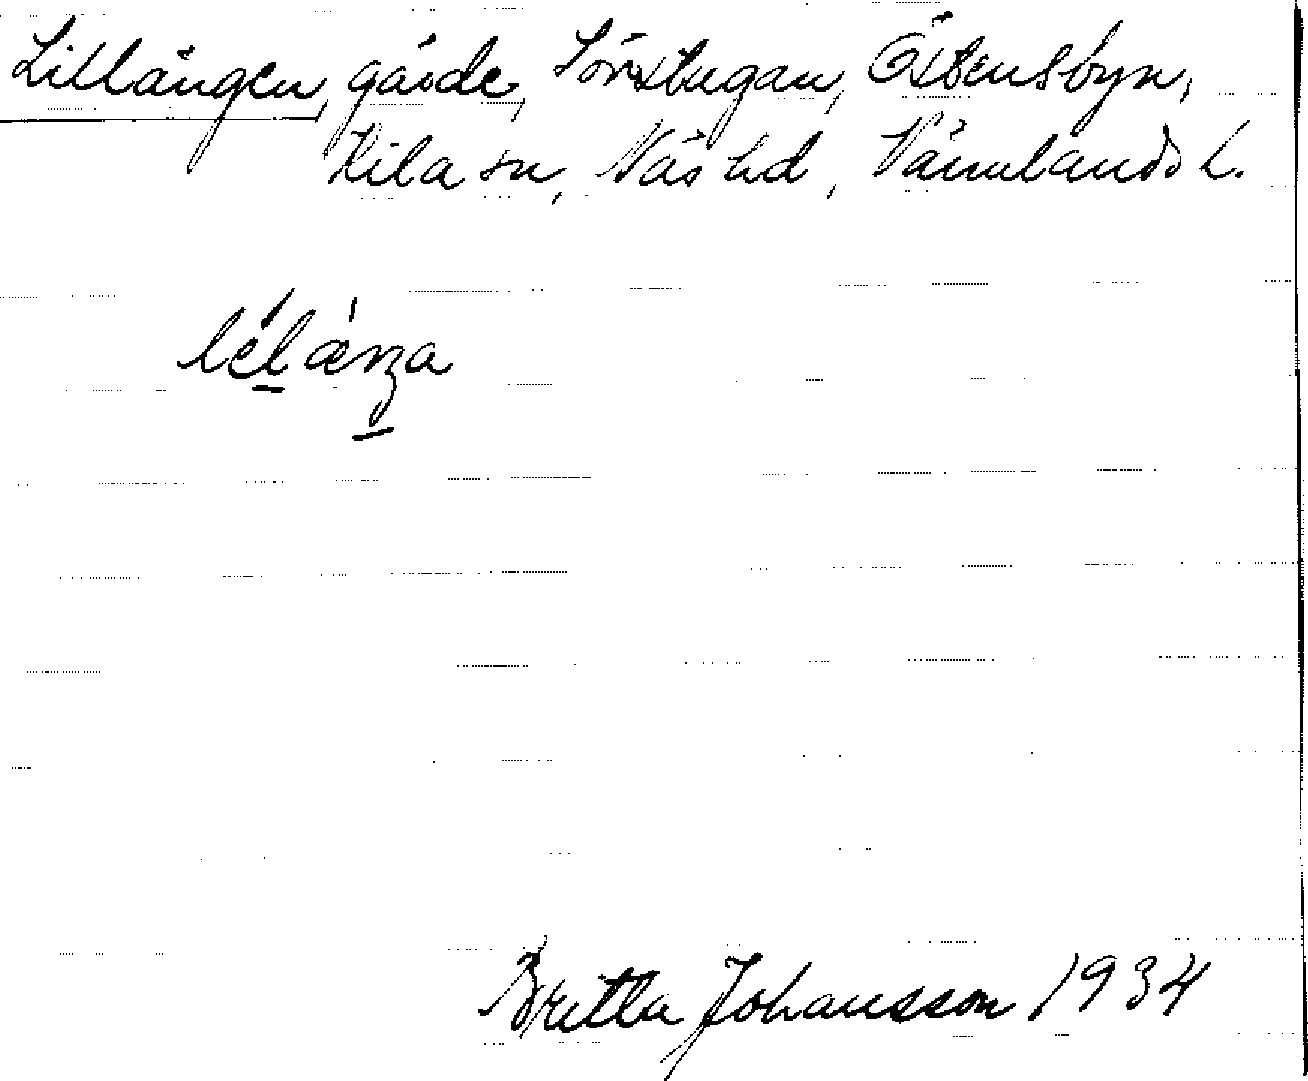 Lillängen, gärde, Sörstugan, Östensbyn,
Kila sn, Näs hd, Värmlands l.
lélænga
Britta Johansson 1934